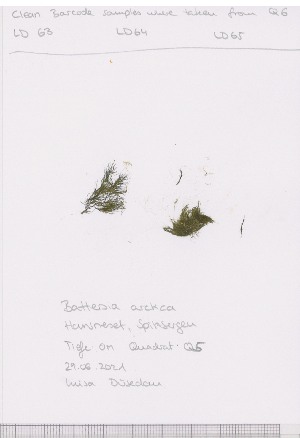 Clean Barcode samples were taken from Q6
LD 63 LD64 LD65
Battersia arctica
Hansneset, Spitsbergen
on Quadrat Q5
29.06.2021
Luisa Düsedau